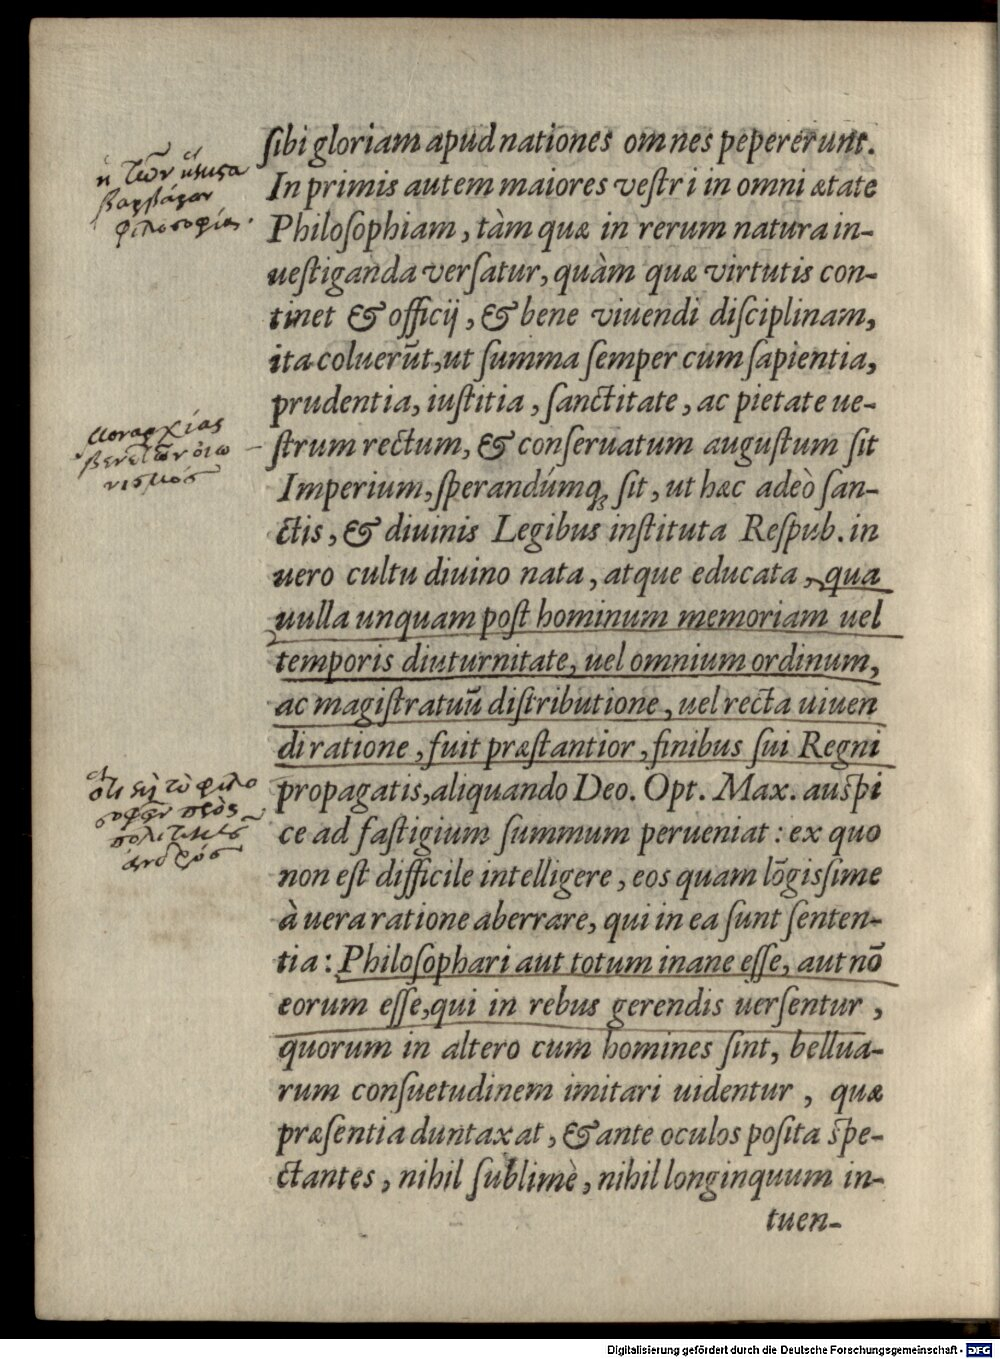 sibi gloriam apud nationes omnes pepererunt.
In primis autem maiores vestri in omni ætate
Philosophiam, tàm quæ in rerum natura in-
uestiganda versatur, quàm quæ virtutis con-
tinet & officij, & bene viuendi disciplinam,
ita coluerūt, ut summa semper cum sapientia,
prudentia, iustitia, sanctitate, ac pietate ue-
strum rectum, & conseruatum augustum sit
Imperium, sperandúmq; sit, ut hæc adeò san-
ctis, & diuinis Legibus instituta Respub. in
uero cultu diuino nata, atque educata, qua
uulla unquam post hominum memoriam uel
temporis diuturnitate, uel omnium ordinum,
ac magistratuū distributione, uel recta uiuen
di ratione, fuit præstantior, finibus sui Regni
propagatis, aliquando Deo. Opt. Max. auspi
ce ad fastigium summum perueniat: ex quo
non est difficile intelligere, eos quam lōgissime
à uera ratione aberrare, qui in ea sunt senten-
tia: Philosophari aut totum inane esse, aut nō
eorum esse, qui in rebus gerendis uersentur,
quorum in altero cum homines sint, bellua-
rum consuetudinem imitari uidentur, quæ
præsentia duntaxat, & ante oculos posita spe-
ctantes, nihil sublimè, nihil longinquum in-
tuen-
βαρβάρων
φιλοσοφίας.
μοναρχίας
βενετῶν οἰω
νισμός
ὅτι τὸ φιλο
σοφεῖν πρὸς
πολιτικοῦ
ἀνδρός
Digitalisierung gefördert durch die Deutsche Forschungsgemeinschaft - DFG